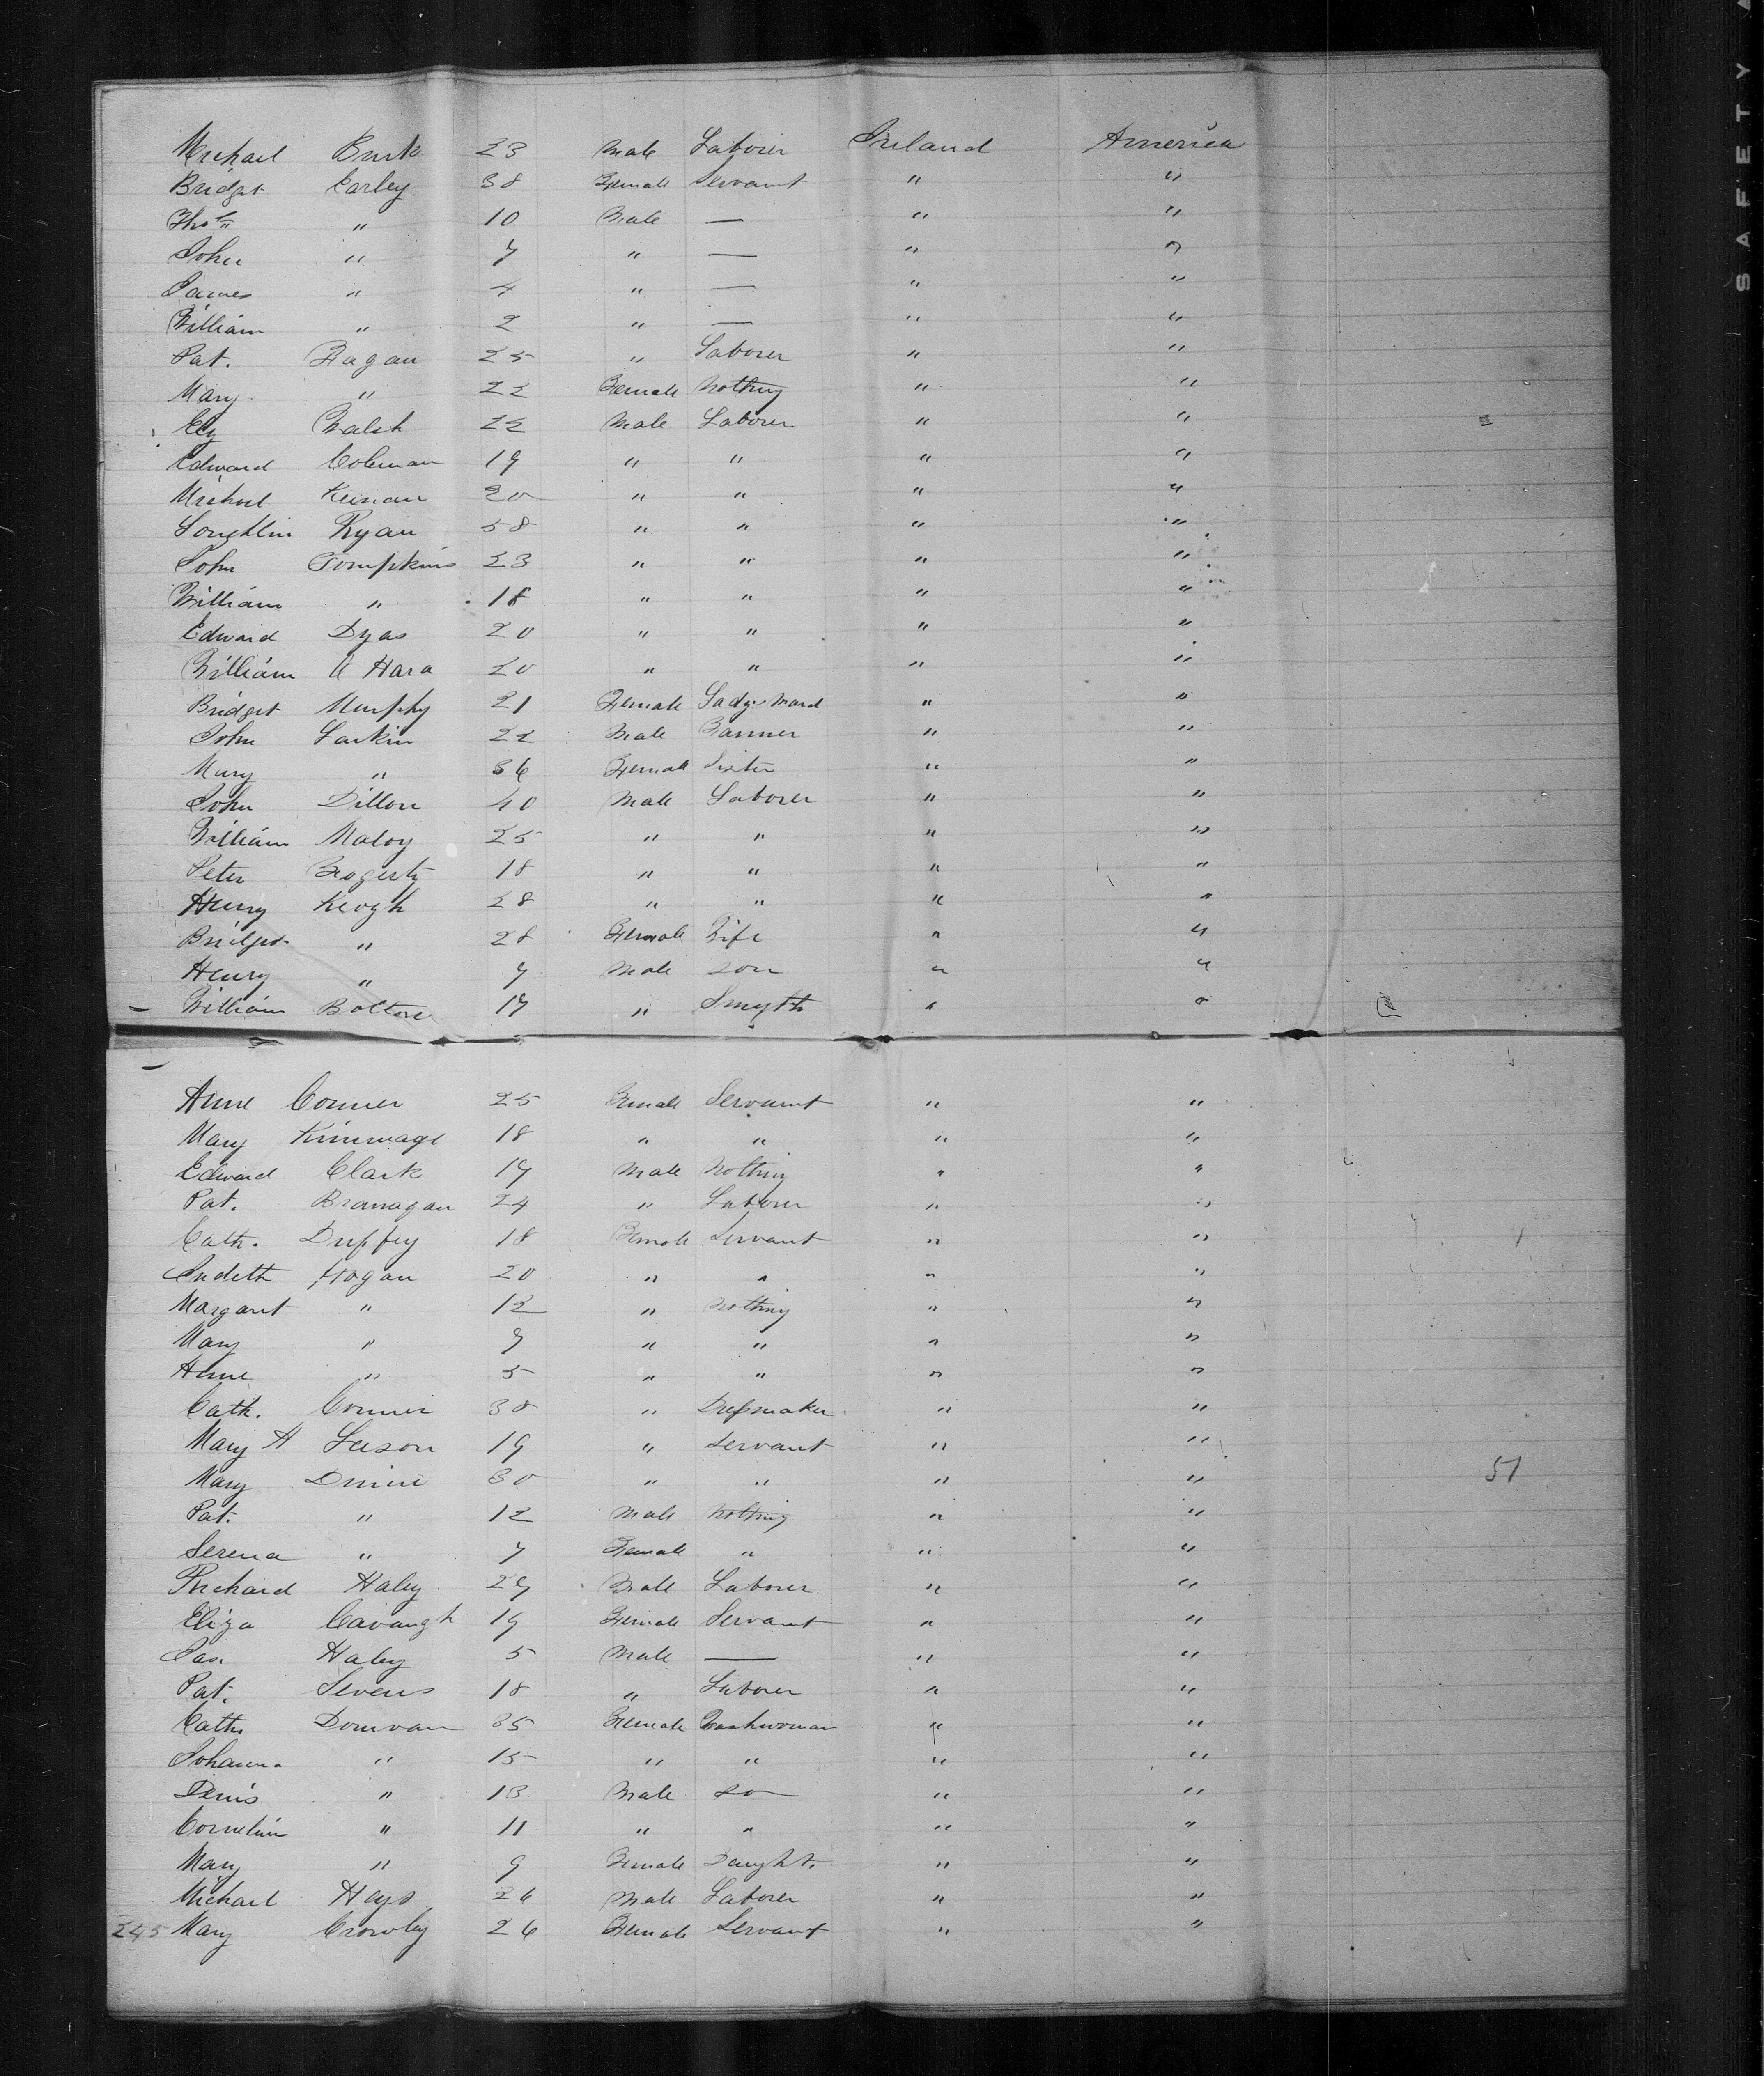 Michael Burk 23 Male Laborer Ireland America
Bridget Carley 38 Female Servant " "
Thos " 10 Male — " "
John " 7 " — " "
James " 4 " — " "
William " 2 " — " "
Pat. Fagan 25 " Laborer " "
Mary " 22 Female Nothing " "
Walsh 22 Male Laborer " "
Edward Coleman 19 " " " "
Michael Keinan 20 " " " "
Loughlin Ryan 58 " " " "
John Tompkins 23 " " " "
William " 18 " " " "
Edward Dyas 20 " " " "
William O Hara 20 " " " "
Bridget Murphy 21 Female Ladys Maid " "
John Larkin 22 Male Farmer " "
Mary " 36 Female Sister " "
John Dillon 40 Male Laborer " "
William Maloy 25 " " " "
Peter Fogerty 18 " " " "
Henry Keogh 28 " " " "
Bridget " 28 Female Wife " "
Henry " 7 Male son " "
William Bolton 17 " Smyth " "
Anne Conner 25 Female Servant " "
Mary Kimmage 18 " " " "
Edward Clark 17 Male Nothing " "
Pat. Branagan 24 " Laborer " "
Cath. Duffey 18 Female Servant " "
Judeth Hogan 20 " " " "
Margaret " 12 " Nothing " "
Mary " 9 " " " "
Anne " 5 " " " "
Cath. Conner 38 " Dressmaker " "
Mary A Leeson 19 " Servant " "
Mary 30 " " " " 51
Pat. " 12 Male Nothing " "
Serena " 7 Female " " "
Richard Haley 29 Male Laborer " "
Eliza Cavaugh 19 Female Servant " "
Jas. Haley 5 Male — " "
Pat. Sevens 18 " Laborer " "
Cath. Donivan 35 Female Washwoman " "
Johanna " 15 " " " "
Denis " 13 Male so " "
Cornelius " 11 " " " "
Mary " 9 Female Daught. " "
Michael Hays 26 Male Laborer " "
245 Mary Crowley 26 Female Servant " "
SAFETY